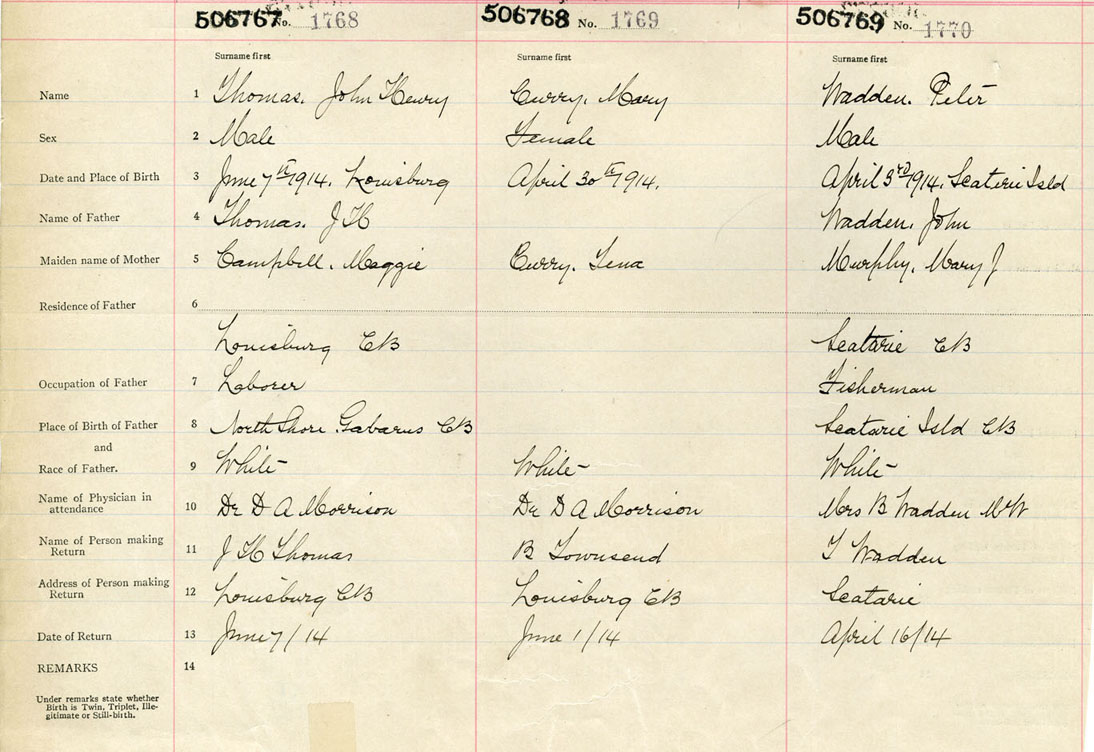 506767 No. 1768 506768 No. 1769 506769 No. 1770
Surname first Surname first Surname first
Name 1 Thomas, John Henry Curry, Mary Wadden, Peter
Sex 2 Male Female Male
Date and Place of Birth 3 June 7th 1914, Louisburg April 30th 1914. April 3rd 1914, Scatarie Isld
Name of Father 4 Thomas, J H Wadden, John
Maiden name of Mother 5 Campbell, Maggie Curry, Lena Murphy, Mary J
Residence of Father 6
Louisburg CB Scatarie CB
Occupation of Father 7 Laborer Fisherman
Place of Birth of Father 8 North Shore Gabarus CB Scatarie Isld CB
and
Race of Father. 9 White White White
Name of Physician in
attendance 10 Dr D A Morrison Dr D A Morrison Mrs B Wadden MW
Name of Person making
Return 11 J H Thomas B Townsend T Wadden
Address of Person making
Return 12 Louisburg CB Louisburg CB Scatarie
Date of Return 13 June 7/14 June 1/14 April 16/14
REMARKS 14
Under remarks state whether
Birth is Twin, Triplet, Ille-
gitimate or Still-birth.